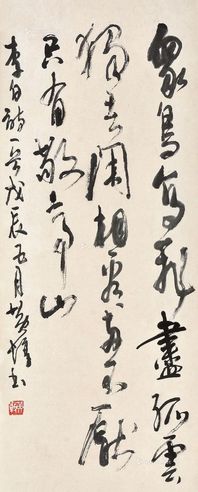 眾鳥高飛盡孤雲
獨去閑相看兩不厭
只有敬亭山
李白詩一首戊辰五月黃書